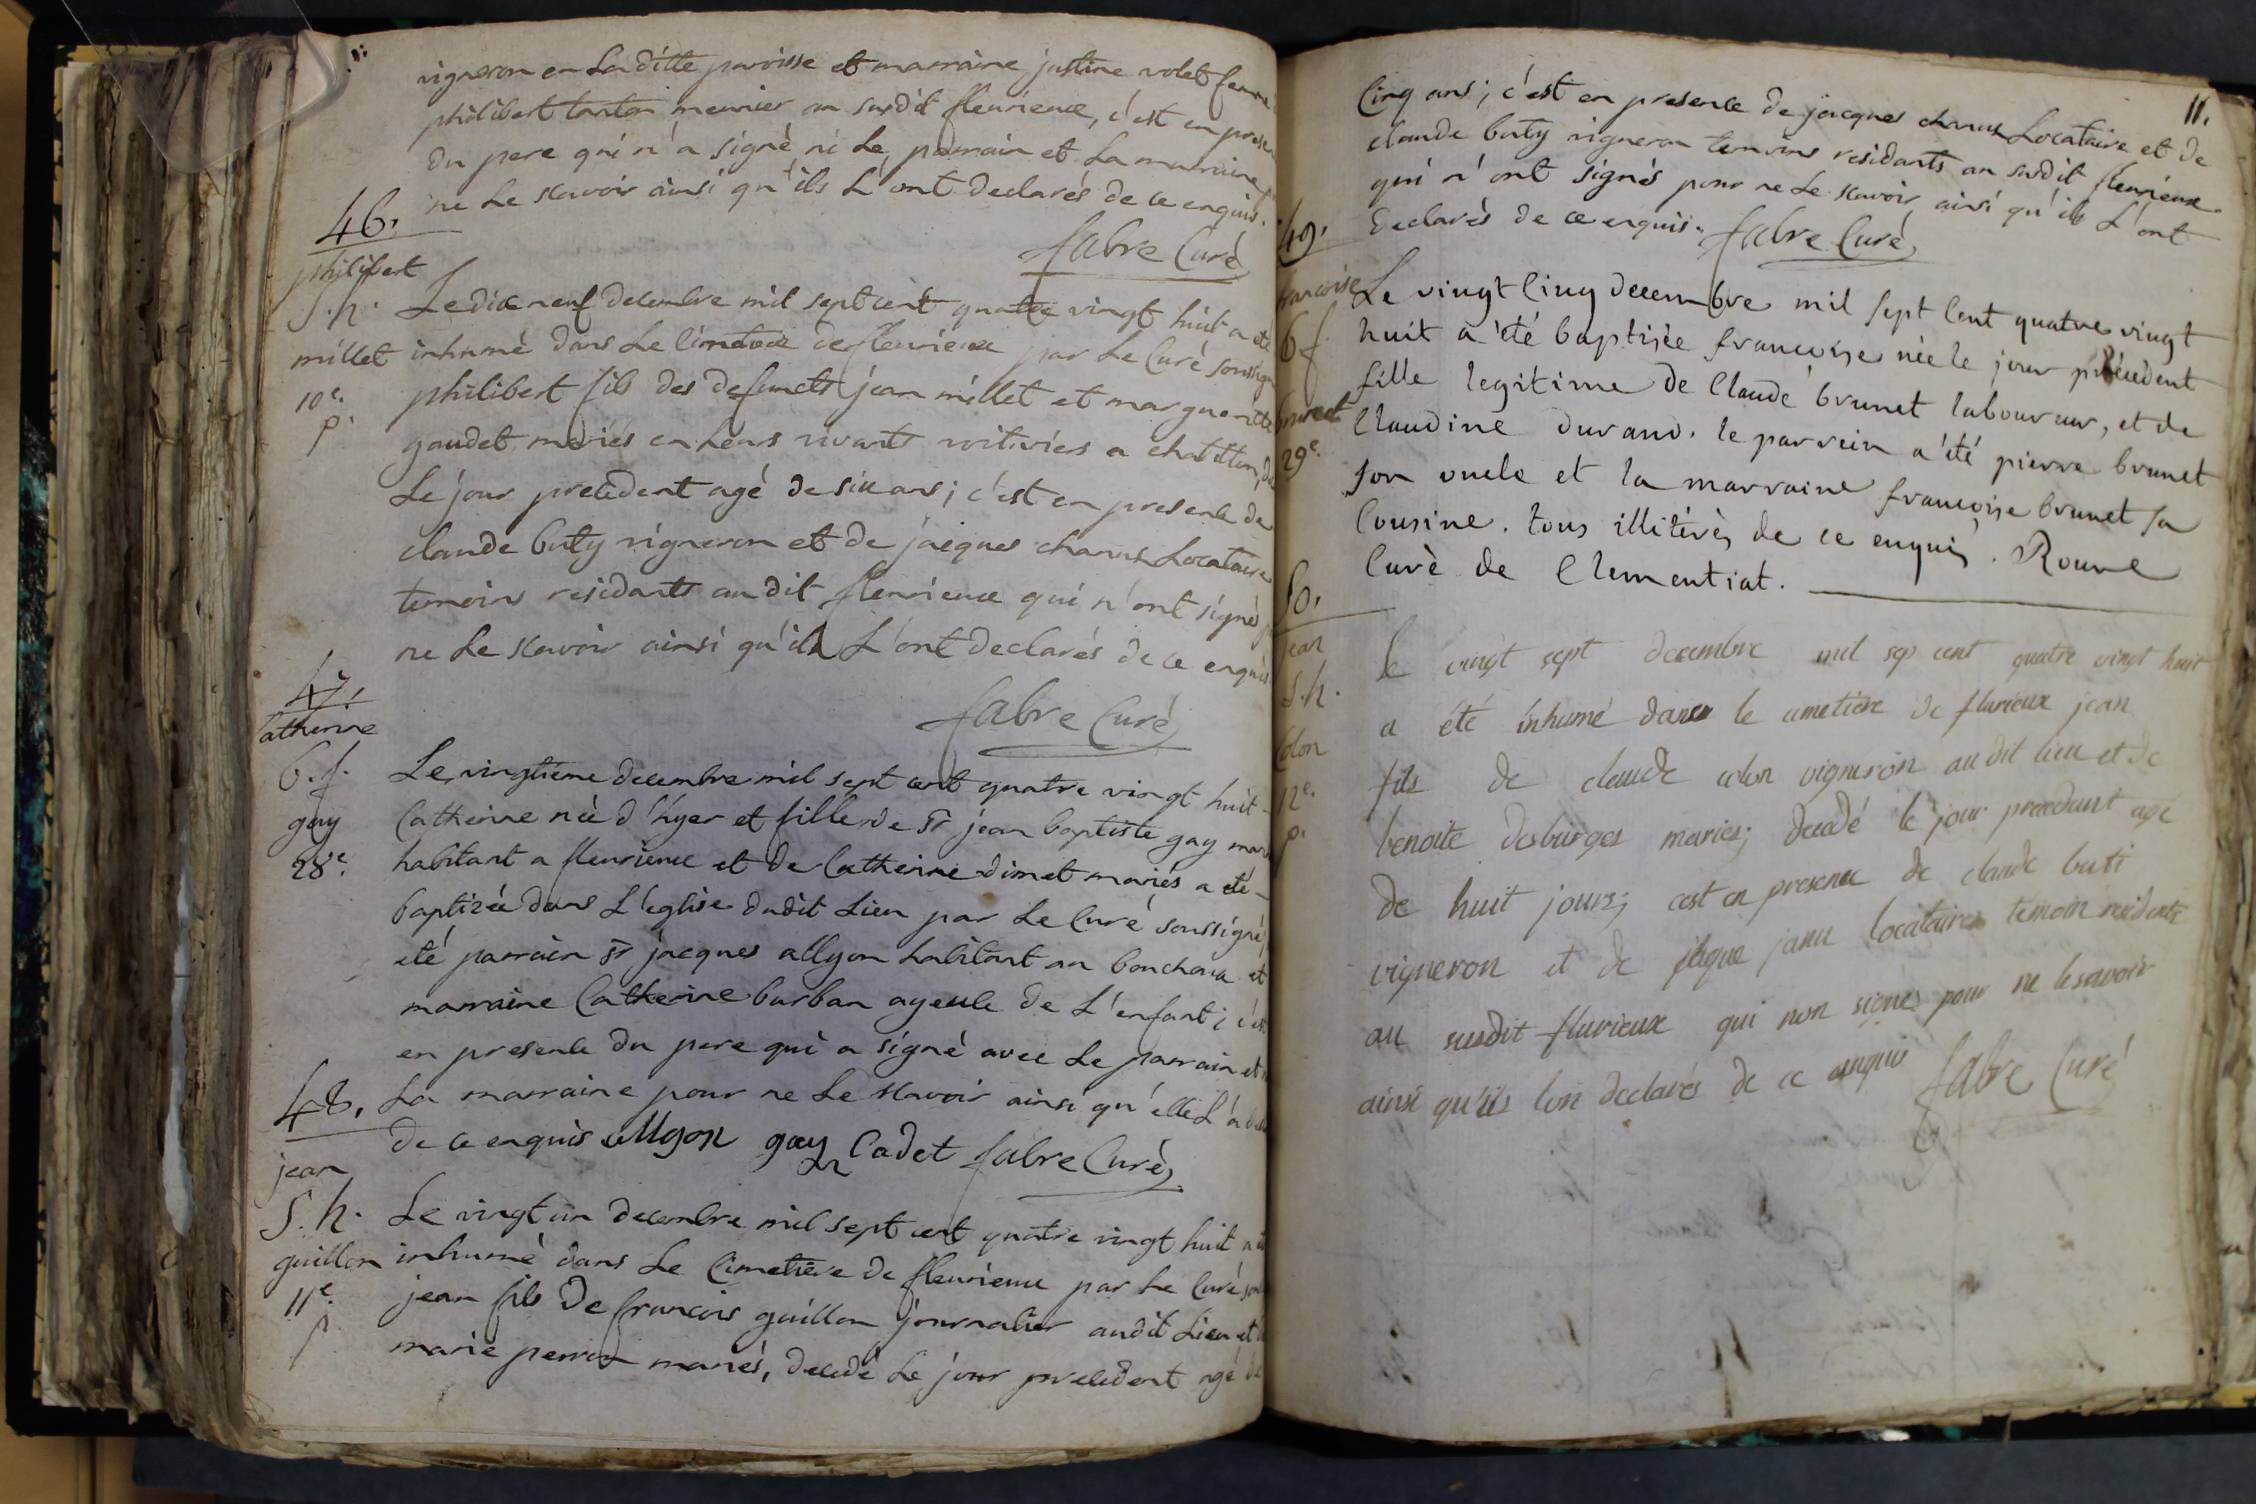 vigneron en La ditte paroisse et marraine justine volet femme
philibert tonton meunier au susdit fleurieux, c'est en presen
du pere qui n'a signé ni Le parrain et La marraine
ne Le scavoir ainsi qu'ils L'ont declarés de ce enquis.
fabre Curé
46.
philibert
S.h.
millet
10e.
p.
Le dix neuf decembre mil sept cent quatre vingt huit a été
inhumé dans Le Cimetiere de fleurieux par Le Curé soussigné
philibert fils des defunts jean millet et marguerite
gaudet mariés en Leurs vivants voituriers a chatillon,
Le jour precedent agé de six ans; c'est en presence de
claude buty vigneron et de jacques charus Locataire
temoins residants audit fleurieux qui n'ont signé
ne Le scavoir ainsi qu'ils L'ont declarés de ce enquis
fabre Curé
47.
Catherine
b.f.
gay
28e.
Le vingtieme decembre mil sept cent quatre vingt huit
Catherine née d'hyer et fille de Sr jean baptiste gay
habitant a fleurieux et de Catherine dimet mariés a eté
baptizée dans L'eglise dudit Lieu par Le Curé soussigné,
eté parrain Sr jacques allyon habitant au bouchoux et
marraine Catherine burban ayeule de L'enfant; c'est
en presence du pere qui a signé avec Le parrain et
La marraine pour ne Le scavoir ainsi qu'elle L'a
de ce enquis allyon gay Cadet fabre Curé
48.
jean
S.h.
guillon
11e.
p
Le vingt un decembre mil sept cent quatre vingt huit a
inhumé dans Le Cimetiere de fleurieux par Le Curé
jean fils de francois guillon journalier audit Lieu et
marie perrin mariés, decedé Le jour precedent agé de
11.
Cinq ans; c'est en presence de jacques charus Locataire et de
claude buty vigneron temoins residants au susdit fleurieux
qui n'ont signés pour ne Le scavoir ainsi qu'ils L'ont
declarés de ce enquis. fabre Curé
49.
francoise
b f
brunet
29e.
Le vingt Cinq decembre mil sept Cent quatre vingt
huit a été baptisée francoise née le jour précédent
fille legitime de Claude brunet laboureur, et de
Claudine durand. le parrein a été pierre brunet
son oncle et la marraine francoise brunet sa
Cousine. tous illitérés de ce enquis. Roune
Curé de Clementiat.
50.
jean
S.h.
Colon
12e.
p.
le vingt sept decembre mil sep cent quatre vingt huit
a été inhumé dans le cimetiere de flurieux jean
fils de claude colon vigneron au dit lieu et de
benoite desburges mariés; decedé le jour precedant agé
de huit jours; cest en presence de claude buti
vigneron et de jaque janu locataires temoin residents
au susdit flurieux qui non signés pour ne le savoir
ainsi qu'ils lon declarés de ce enquis fabre Curé